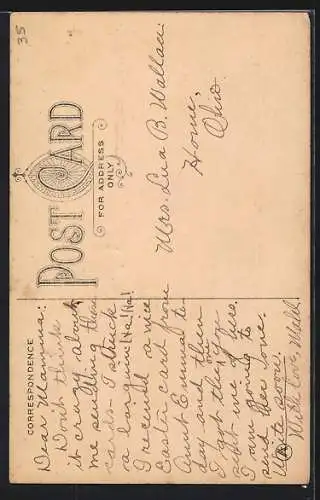 35
POST CARD
FOR ADDRESS
ONLY
Mrs. Lua B. Wallace.
Home,
Ohio.
CORRESPONDENCE
Dear Mamma:
Don't think
it crazy about
me sending these
cards. I struck
a bargain! Ha! Ha!
I received a nice
Easter card from
Aunt Emma to-
day and then
I got this for
sight one of hers.
I am going to
send her one.
Write soon.
With love, Mabl.